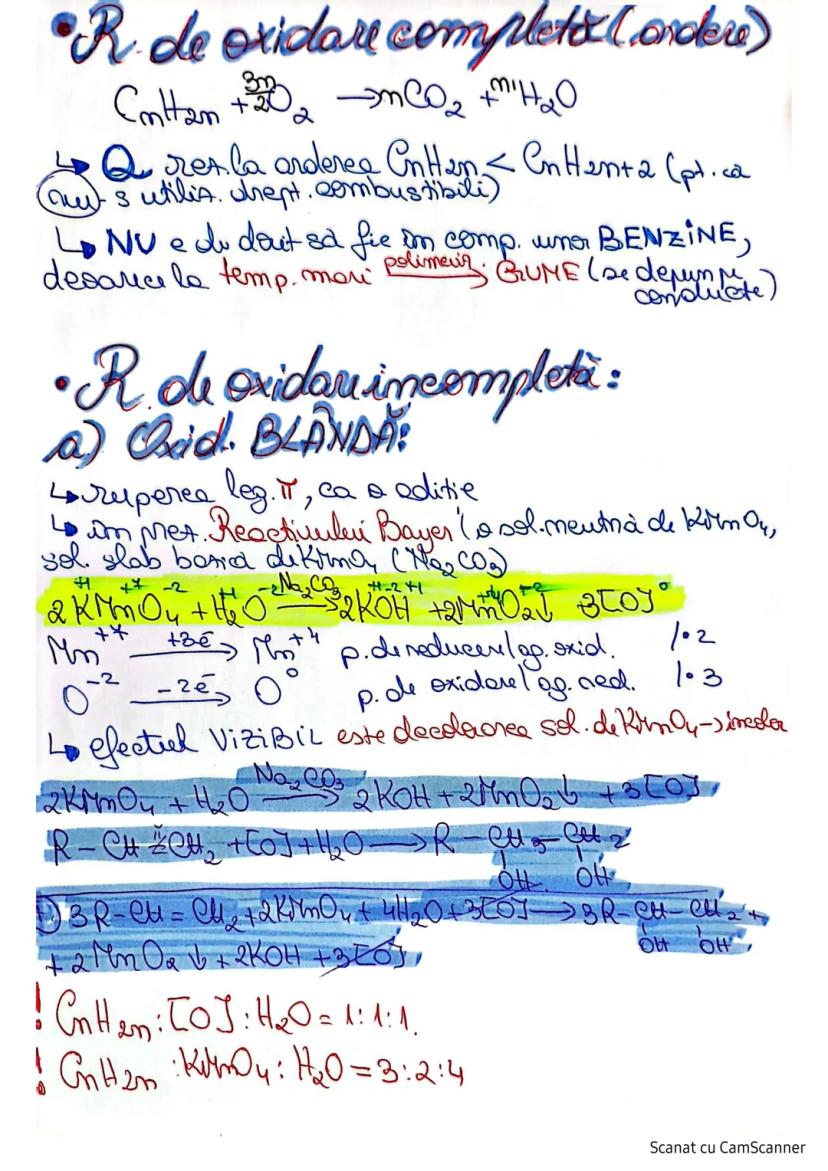 • R. de oxidare completă (ardere)
CnH2n + 3n/2 O2 → nCO2 + nH2O
↳ Q rez. la arderea CnH2n < CnH2n+2 (pt. că
nu-s utiliz. drept combustibili)
↳ NU e de dorit să fie în comp. unor BENZINE,
deoarece la temp. mari polimeriz. → GUME (se depun pe
conducte)
• R. de oxidare incompletă:
a) Oxid. BLÂNDĂ:
↳ ruperea leg. π, ca o adiție
↳ în prez. Reactivului Bayer (o sol. neutră de KMnO4,
sol. slab bazică de KMnO4 (Na2CO3)
2KMnO4 + H2O Na2CO3 → 2KOH + 2MnO2↓ 3[O]
Mn+7 +3e- → Mn+4 p. de reducere/ag. oxid. /·2
O-2 -2e- → O0 p. de oxidare/ag. red. /·3
↳ efectul VIZIBIL este decolorarea sol. de KMnO4 → incolor
2KMnO4 + H2O Na2CO3 → 2KOH + 2MnO2↓ + 3[O]
R - CH = CH2 + [O] + H2O → R - CH - CH2
OH OH
3R-CH = CH2 + 2KMnO4 + 4H2O + 3[O] → 3R-CH-CH2 +
OH OH
+ 2MnO2↓ + 2KOH + 3[O]
! CnH2n : [O] : H2O = 1:1:1.
! CnH2n : KMnO4 : H2O = 3:2:4
Scanat cu CamScanner